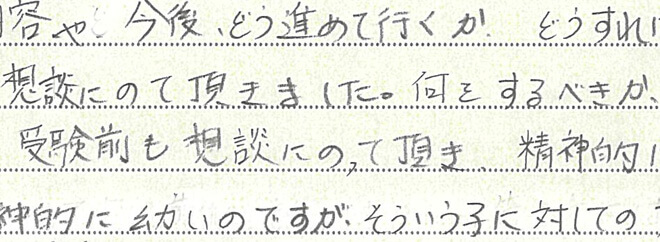 容や 今後、どう進めて行くか どうすれ
想談にのて頂きました。何をするべきか、
受験前も想談にのって頂き、精神的
神的に幼いのですが、そういう子に対しての